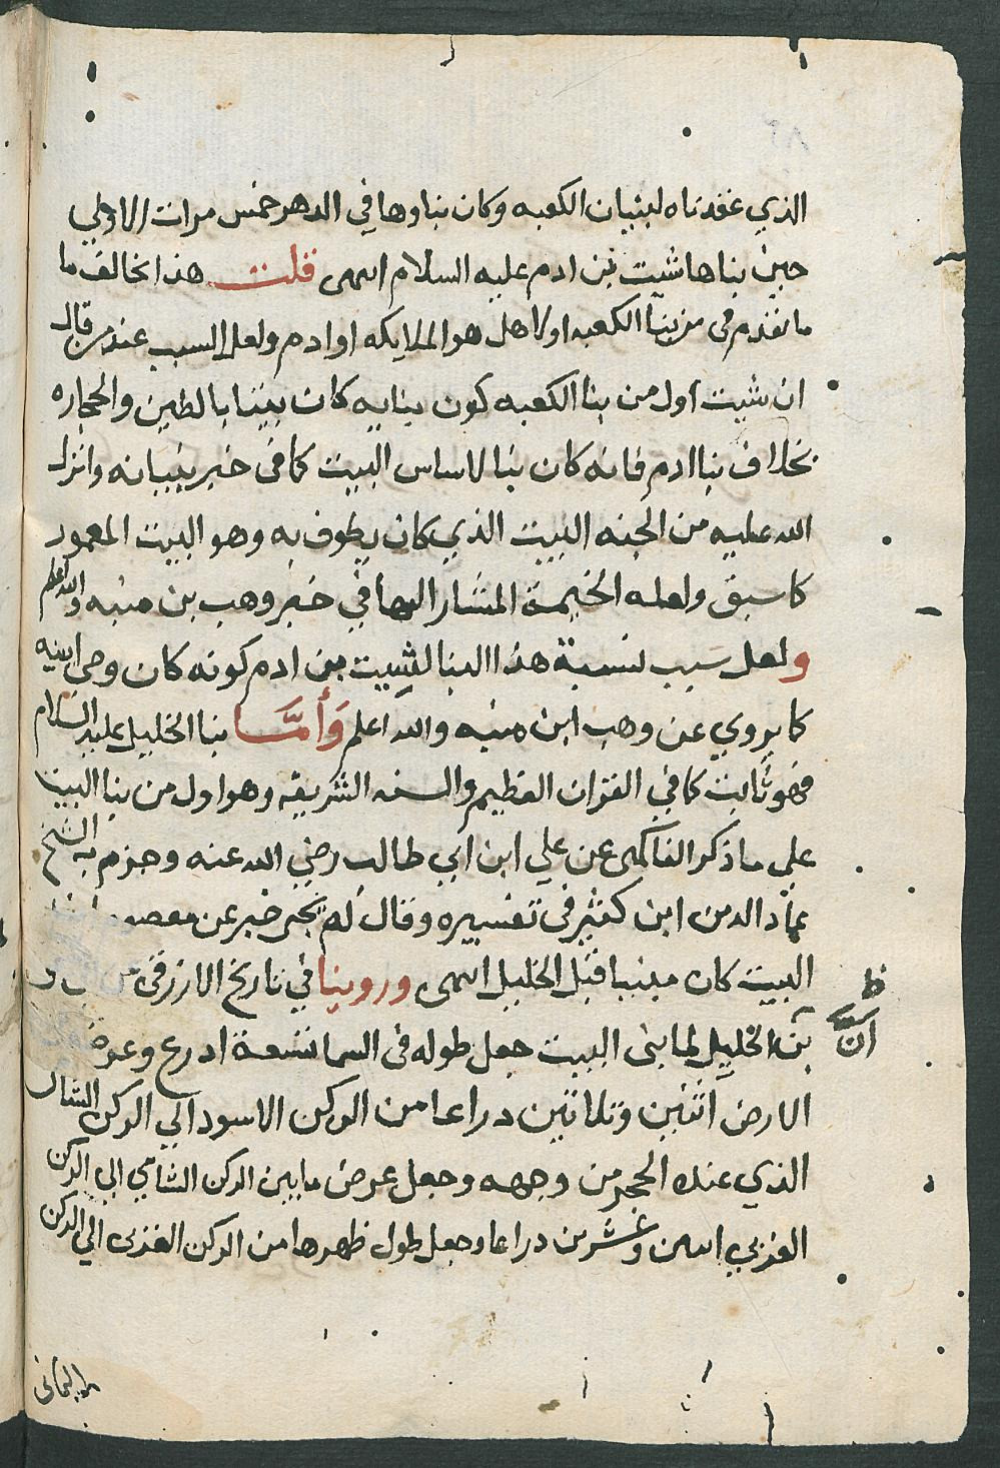 الذي عقدناه لبنيان الكعبه وكان بناوها في الدهر خمس مرات الاولي
حين بناها شيث بن ادم عليه السلام انتهى قلت هذا يخالف ما
ما تقدم في من بنا الكعبه اولا هل هو الملايكه او ادم ولعل السبب عند من قال
ان شيث اول من بنا الكعبه كون بنايه كان بيتا بالطين والحجاره
بخلاف بنا ادم فانه كان بنا لاساس البيت كما في خبر بنيانه وانزل
الله عليه من الجنه البيت الذي كان يطوف به وهو البيت المعمور
كما سبق ولعله الخيمة المشار اليها في خبر وهب بن منبه والله اعلم
ولعل سبب نسبة هذا البنا لشيث بن ادم كونه كان وصي ابيه
كما يروي عن وهب ابن منبه والله اعلم وأمَّا بنا الخليل عليه السلام
فهو ثابت كما في القران العظيم والسنه الشريفه وهو اول من بنا البيت
علي ما ذكر الفاكهى عن علي ابن ابي طالب رضي الله عنه وجزم به الشيخ
عماد الدين ابن كثير في تفسيره وقال لم يجى خبر عن معصوم
البيت كان مبنيا قبل الخليل انتهى وروينا في تاريخ الازرقى
ظ
ان
بن الخليل لما بنى البيت جعل طوله في السما تسعة ادرع وعرضه
الارض اثنين وثلاثين دراعا من الركن الاسود الي الركن الشامي
الذي عنده الحجر من وجهه وجعل عرض ما بين الركن الشامي الي الركن
الغربي اثنين وعشرين دراعا وجعل طول ظهرها من الركن الغربى الي الركن
اليمانى